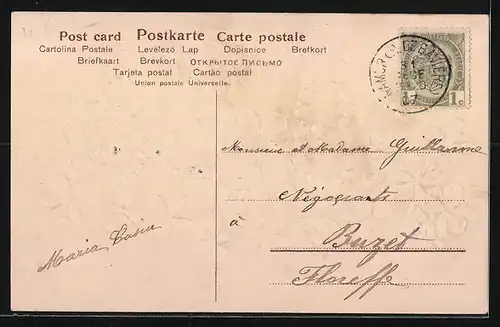 Post card Postkarte Carte postale
Cartolina Postale Levelező Lap Dopisnice Brefkort
Briefkaart Brevkort ОТКРЫТОЕ ПИСЬМО
Tarjeta postal Cartão postal
Union postale Universelle.
1 c
Monsieur et Madame Guillaume
Négociants
à
Buzet
Floreffe
Maria